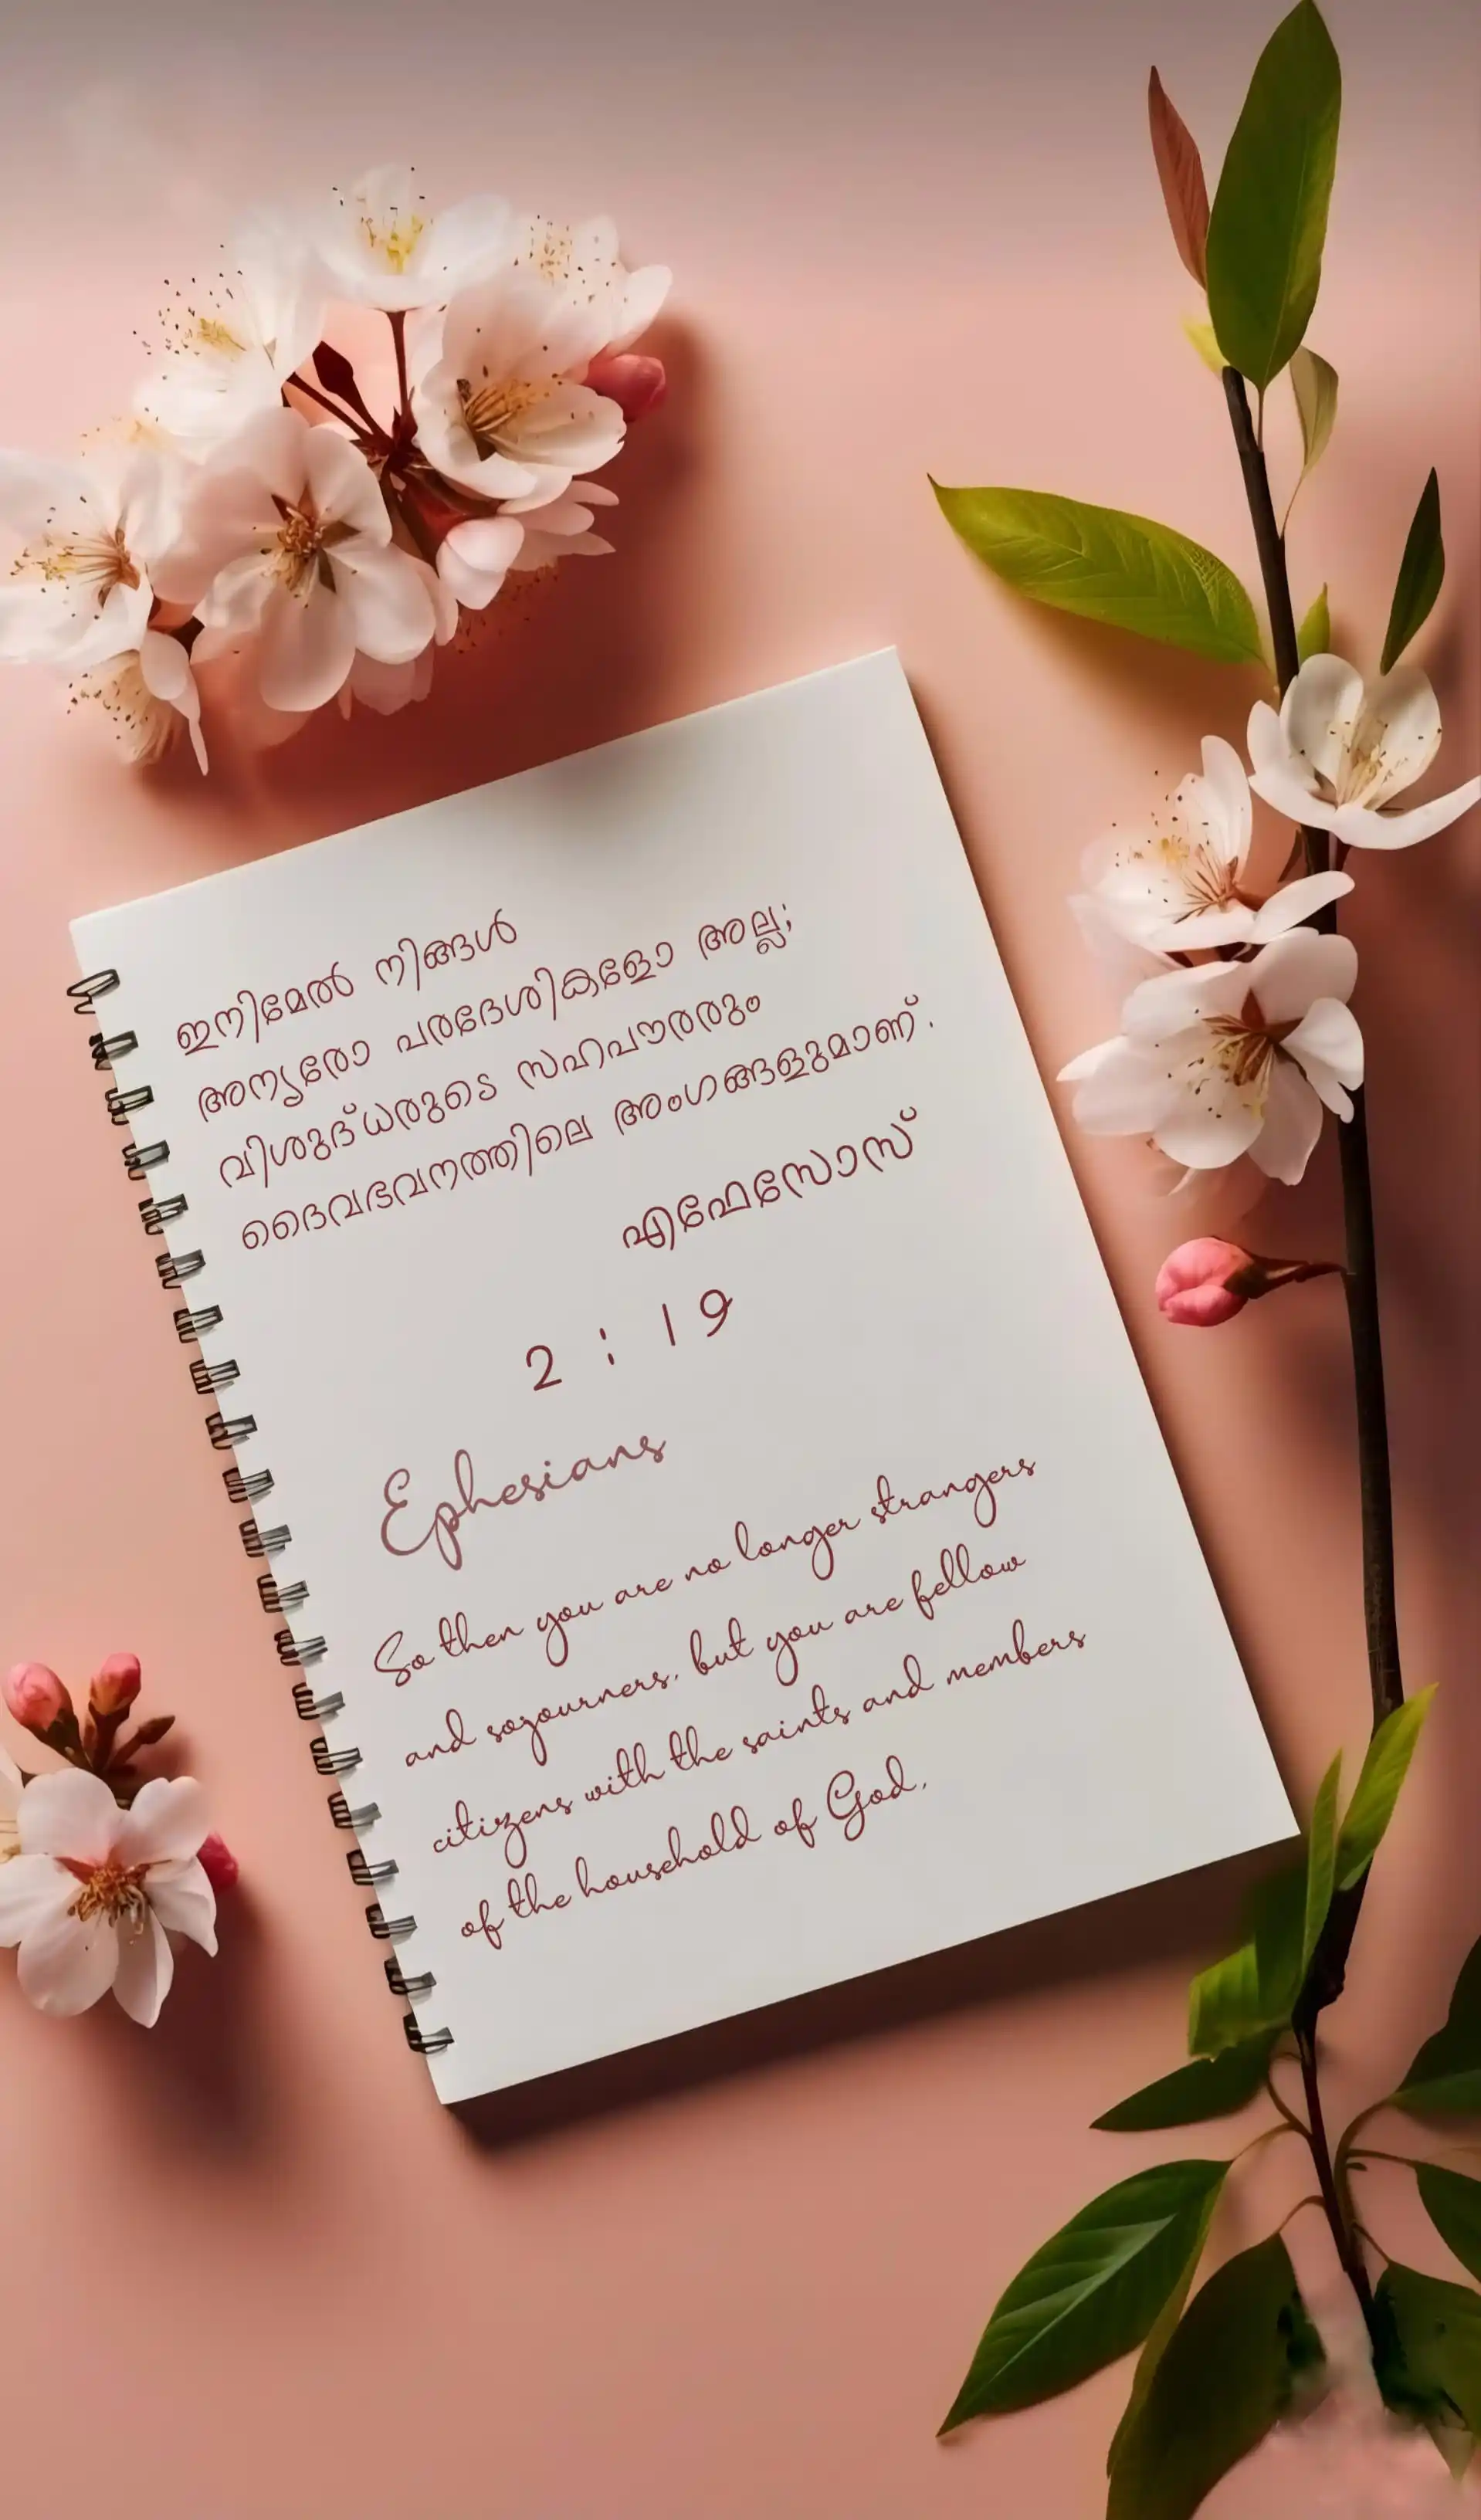 ഇനിമേൽ നിങ്ങൾ
അന്യരോ പരദേശികളോ അല്ല;
വിശുദ്ധരുടെ സഹപൗരരും
ദൈവഭവനത്തിലെ അംഗങ്ങളുമാണ്.
എഫേസോസ്
2 : 19
Ephesians
So then you are no longer strangers
and sojourners, but you are fellow
citizens with the saints and members
of the household of God,